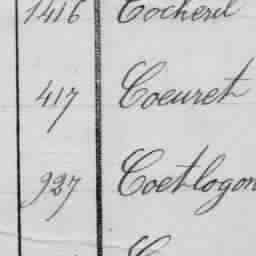 1416 Cocherel
417 Coeuret
927 Coetlogon